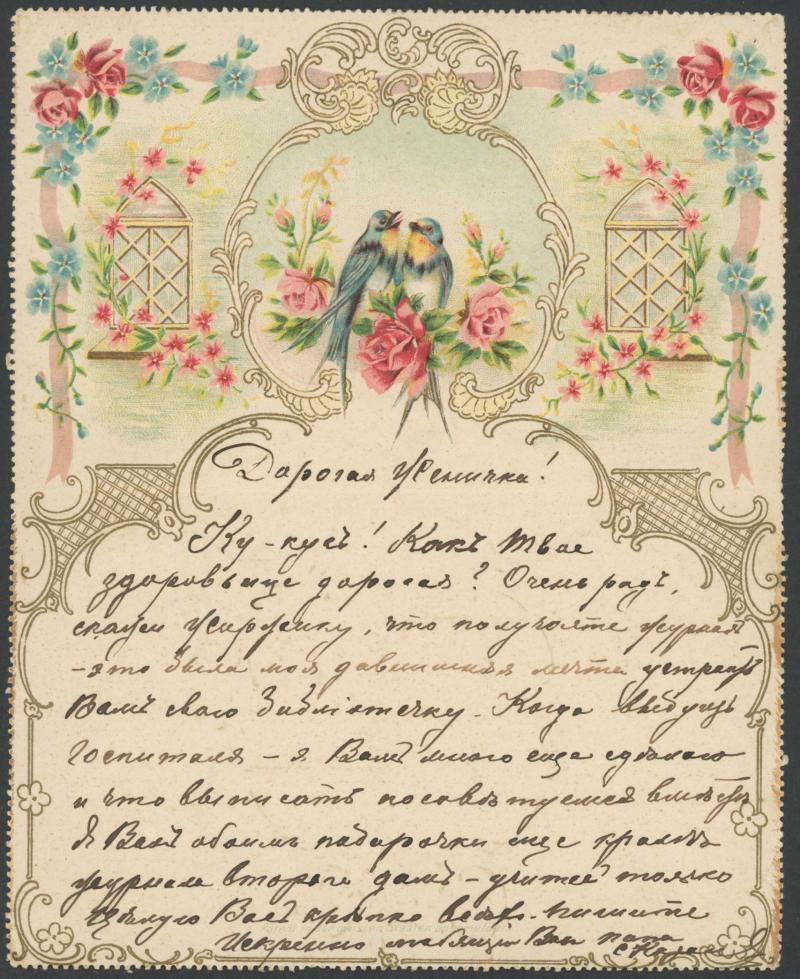 Дорогая Женичка!
Ку-кусъ! Какъ твое
здоровьице дорогая? Очень радъ,
скажи Жоржику, что получаяте журнал
- это была моя давишняя мечта устроить
Вамъ свою библіотечку. Когда выбуду
Госпиталя - я Вамъ много еще сделаю
и что выписать посоветуемся вместе
Я Вамъ обоимъ подарочки еще кроме
журнала второго дамъ - учитес только
Целую Васъ крепко всехъ. пишите
Искренно любящій Васъ папа